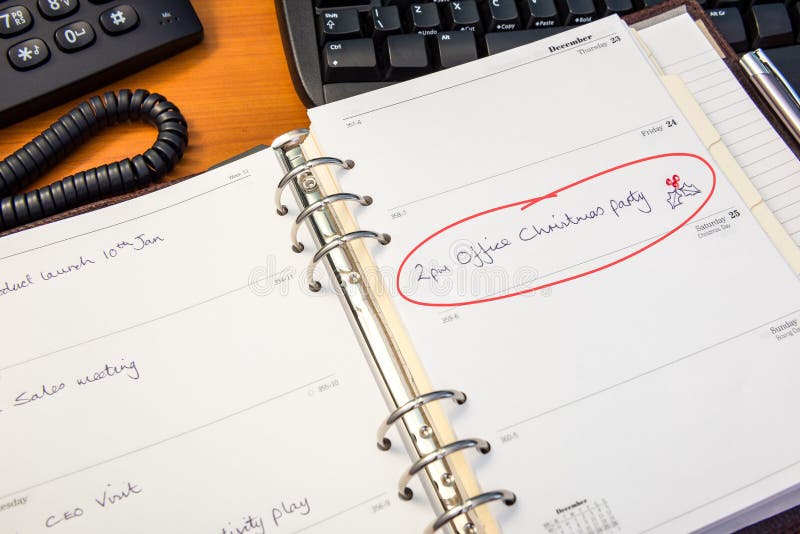 Week 51
oduct launch 10th Jan
354-11
Sales meeting
355-10
esday
CEO Visit
356-9
tivity play
December
Thursday 23
357-8
Friday 24
358-7
2pm Office Christmas party
Saturday 25
Christmas Day
359-6
Sunday
Boxing Da
360-5
December
Ctrl
Alt
Undo
Cut
Copy
Paste
dreamstime